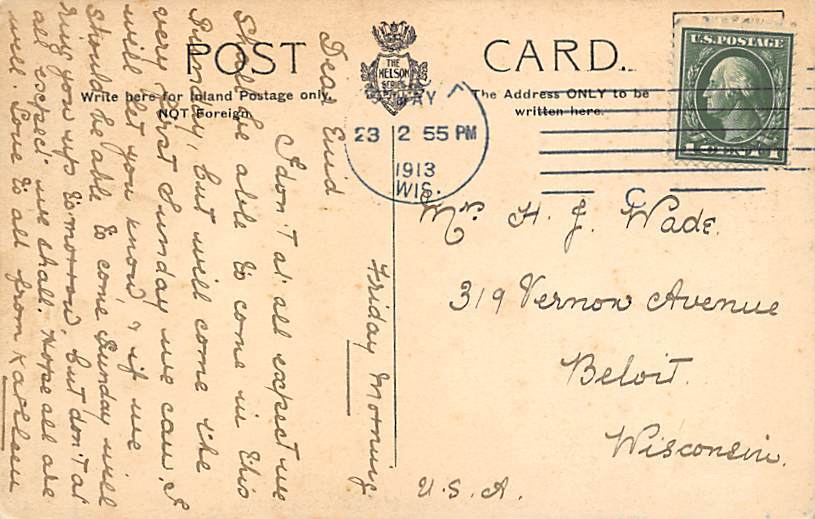 POST CARD.
THE
NELSON
SERIES
Write here for Inland Postage only
NOT Foreign.
The Address ONLY to be
written here.
U.S. POSTAGE
1 CENT 1
MAY
23 2 55 PM
1913
WIS.
Friday Morning
Dear Enid
I don't at all expect we
shall be able to come in this
Sunday, but will come the
very first Sunday we can. I
will let you know, & if we
should be able to come Sunday will
ring you up to-morrow, but don't at
all expect we shall. Hope all are
well. Love to all from Kathleen
Mrs H. J. Wade.
319 Vernon Avenue
Beloit.
Wisconsin.
U.S.A.